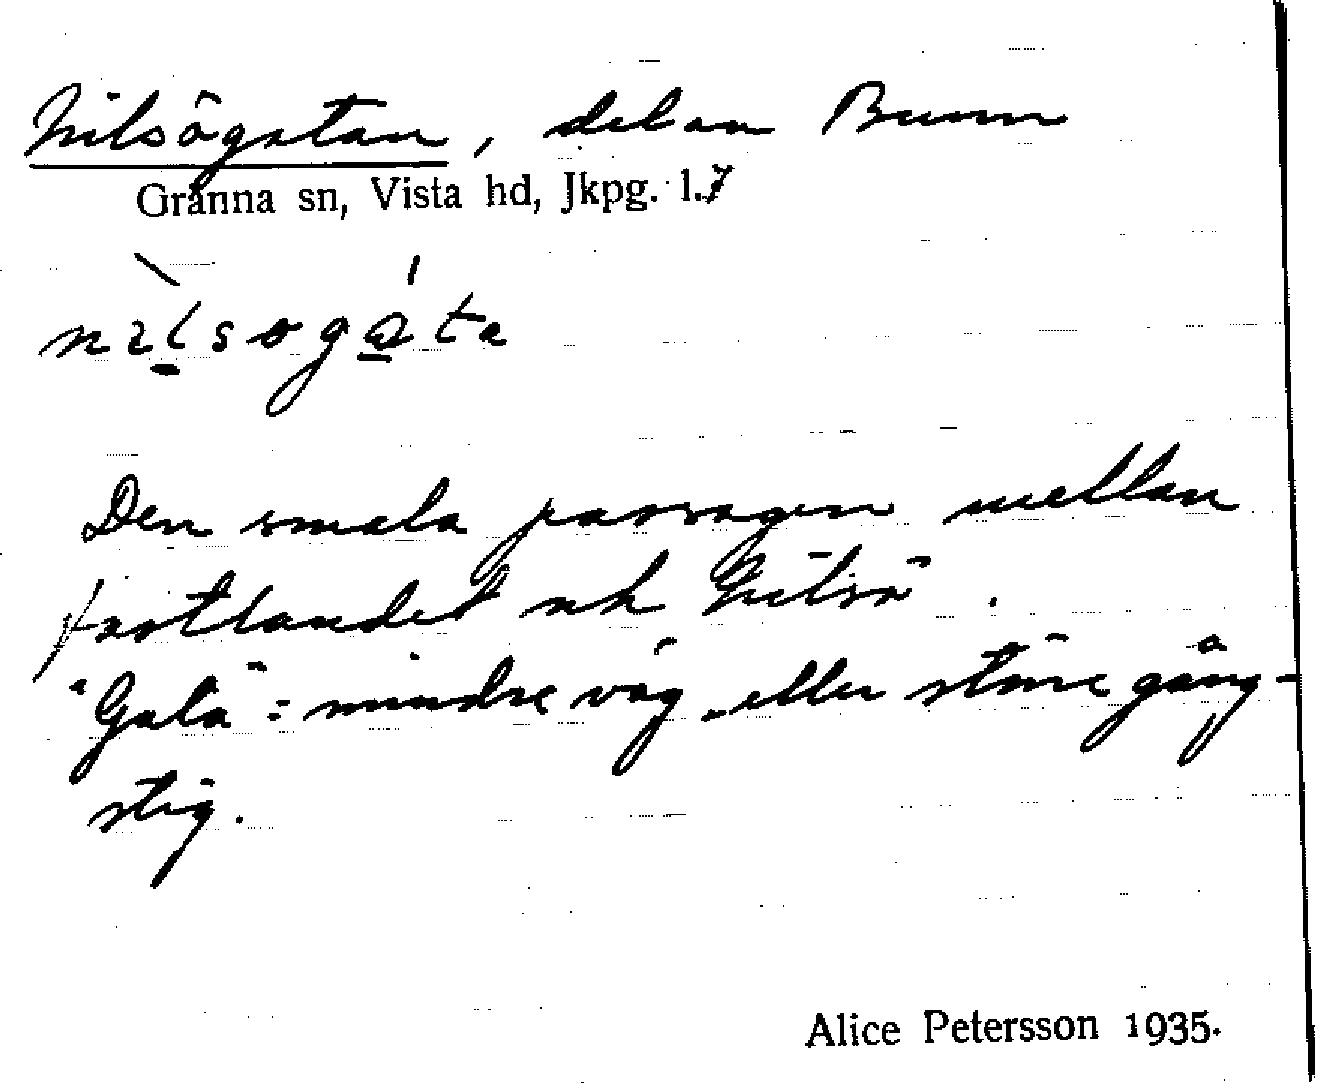 Nilsögatan, del av Bunn
Gränna sn, Vista hd, Jkpg. l. 7
Den smala passagen mellan
fastlandet och
"Gata" = mindre väg eller större gång-
stig.
Alice Petersson 1935.